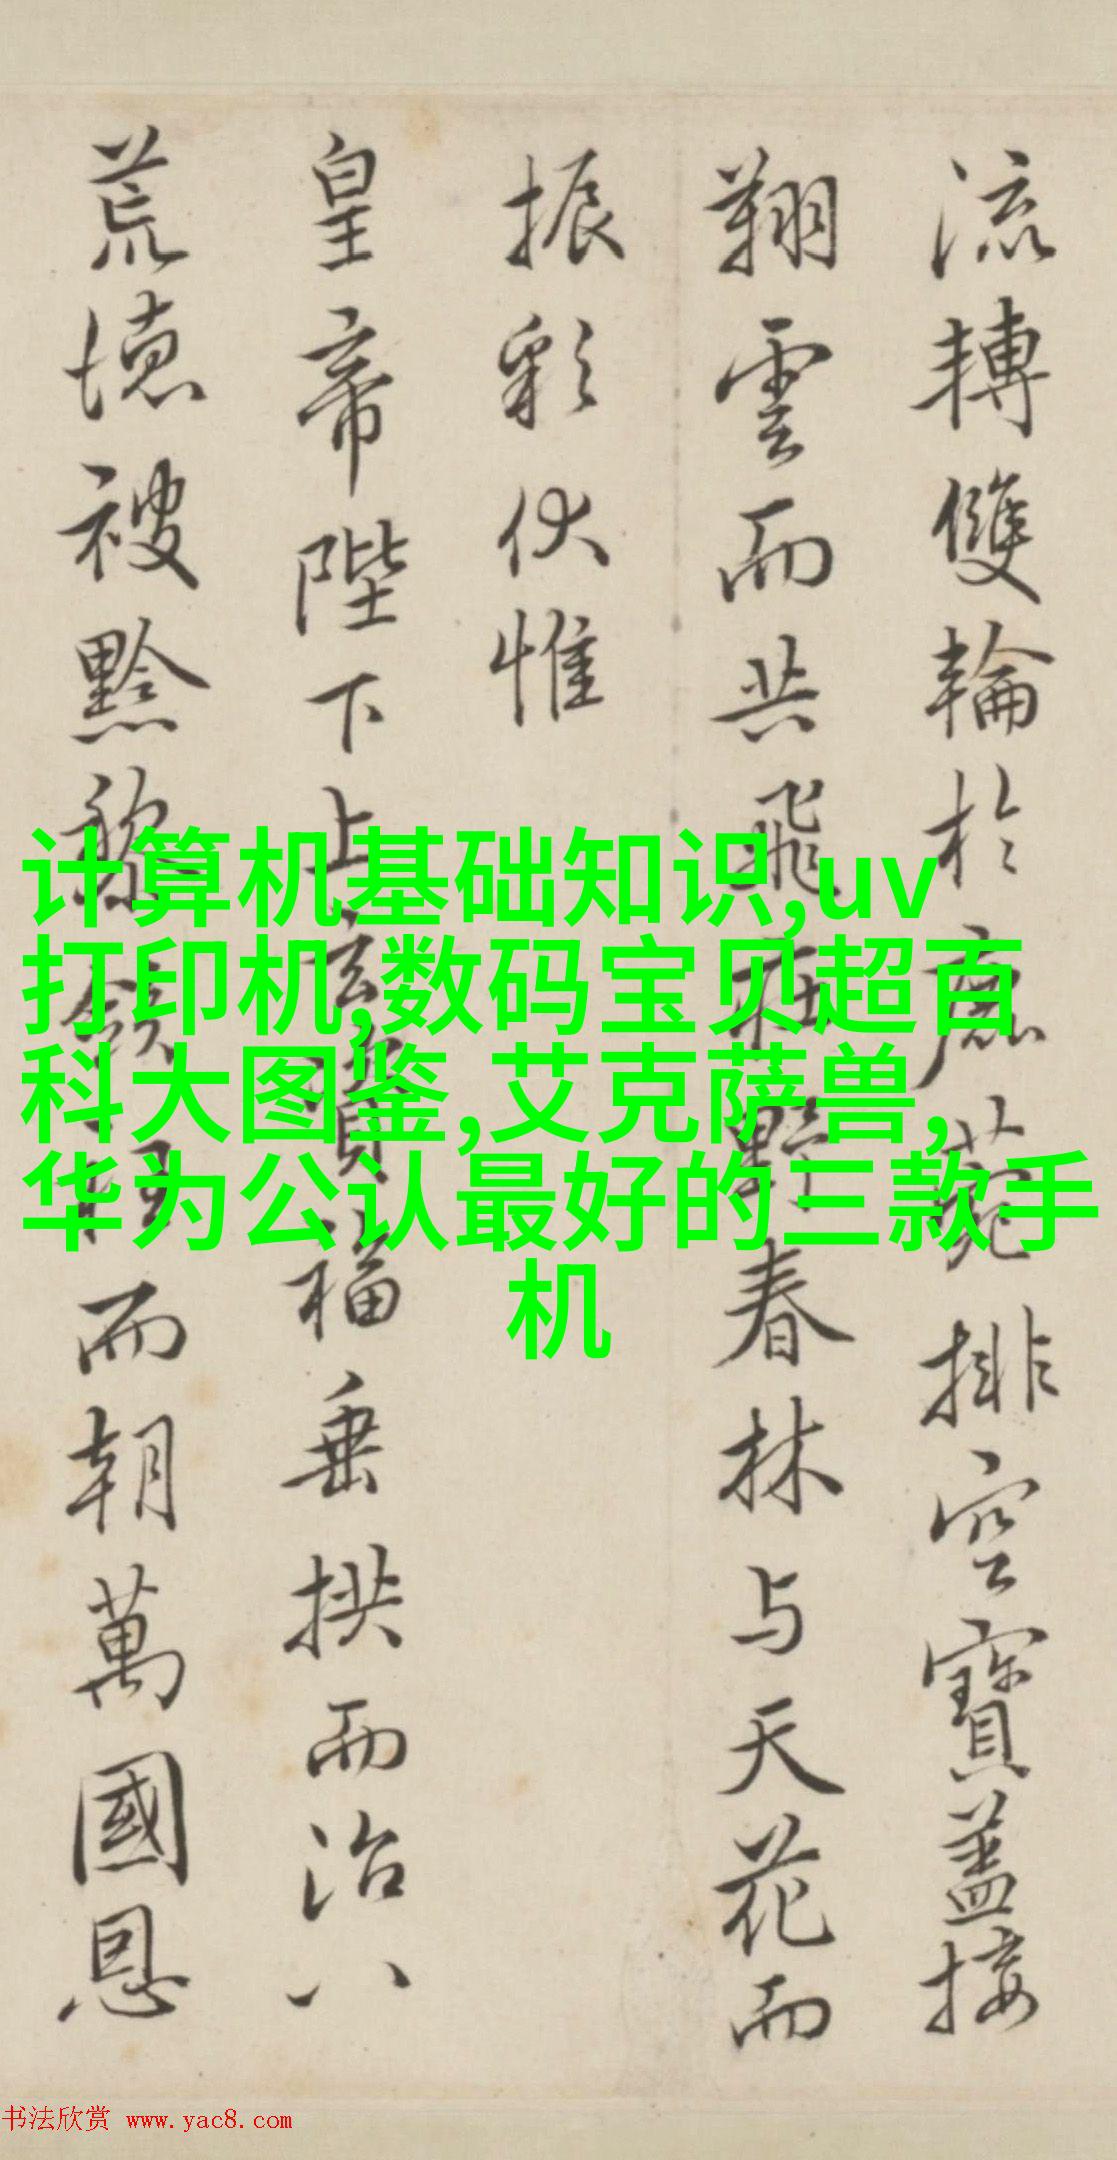 流轉雙輪於鹿菀排空寶蓋接
翔雲而共飛莊野春林与天花而
振彩伏惟
皇帝陛下上玄資福垂拱而治八
荒德被黔黎斂衽而朝萬國恩
计算机基础知识,uv
打印机,数码宝贝超百
科大图鉴,艾克萨兽,
华为公认最好的三款手
机
书法欣赏 www.yac8.com